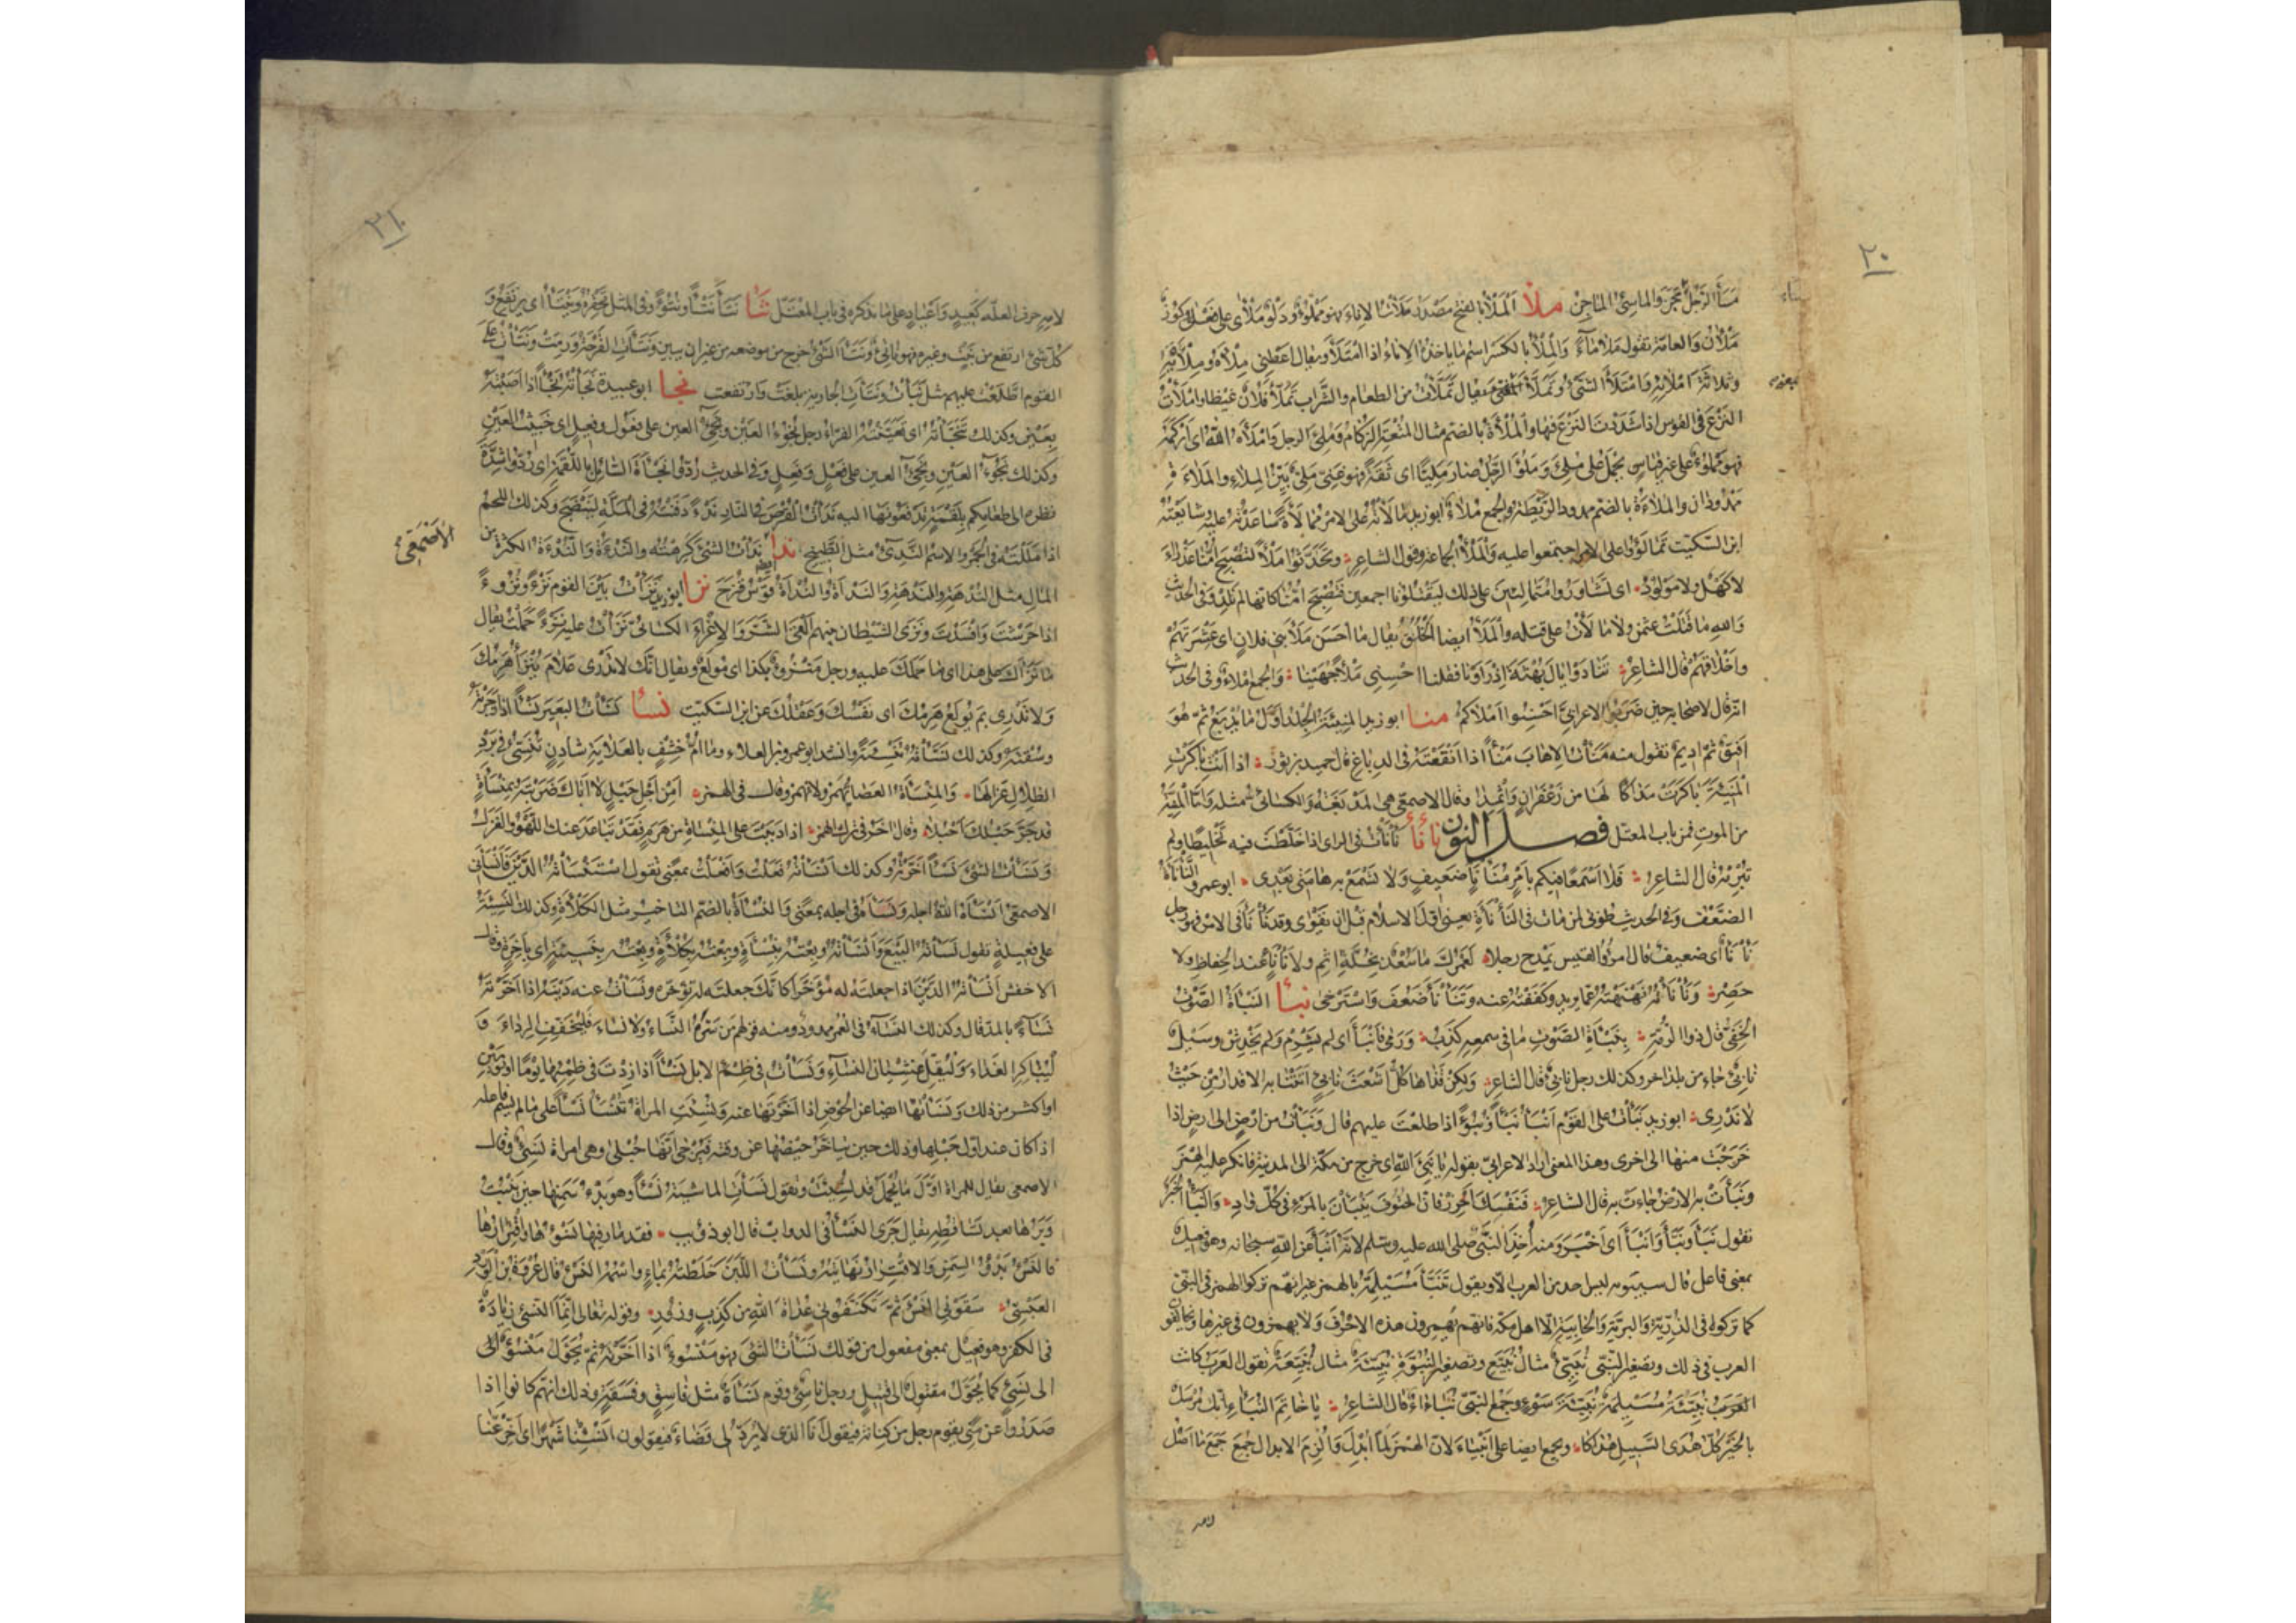 ٢٠
مسأ الرجل مجن والماسئ الماجن ملأ الملأ بالفتح مصدر ملأت الاناء فهو مملوء ودلو ملأى على فعلى وكوز
ملآن والعامة تقول ملا ماء والملء بالكسر اسم ما ياخذه الاناء اذا امتلأ ويقال اعطني ملأه وملأيه
وثلاثة املائه وامتلأ الشئ وتملأ بمعنى يقال تملأت من الطعام والشراب تملأ فلان غيظا واملأت
النزع في القوس اذا شددت النزع فيها والملأة بالضم مثال المتعة الزكام وملئ الرجل واملأه الله اى ازكمه
فهو مملوء على غير قياس يحمل على ملئ وملؤ الرجل صار مليئا اى ثقة فهو غنى ملئ بين الملاء والملاءة
ممدودان والملاءة بالضم ممدود الريطة والجمع ملاء ابو زيد مالأته على الامر ممالأة ساعدته عليه شايعته
ابن السكيت تمالؤوا على الامر اجتمعوا عليه والملأ الجماعة وقول الشاعر وتحدثوا ملأ لتصبح امنا عذراء
لا كهل ولا مولود اى تشاوروا متمالئين على ذلك ليقتلونا اجمعين فتصبح امنا كانها لم تلد وفي الحديث
والله ما قتلت عثمن ولا مالأت على قتله والملأ ايضا الخلق يقال ما احسن ملأ بني فلان اى عشرتهم
واخلاقهم قال الشاعر تنادوا يال بهثة اذ راونا فقلنا احسني ملأ جهينا والجمع املاء وفي الحديث
انه قال لاصحابه حين ضربوا الاعرابي احسنوا املاءكم منأ ابو زيد المنيئة الجلد اول ما يدبغ ثم هو
افيق ثم اديم تقول منه منأت الاهاب منأ اذا انقعته في الدباغ قال حميد بن ثور اذا انت باكرت
المنيئة باكرت مداكا لها من زعفران واثمدا وقال الاصمعي هى المدبغة والكسائى مثله واما المنية
من الموت فمن باب المعتل فصل النون نأنأ نأنأت في الراى اذا خلطت فيه تخليطا ولم
تبرمه قال الشاعر فلا اسمعن فيكم بامر منأنأ ضعيف ولا تسمع به هامتى بعدى ابو عمرو النأنأة
الضعف وفي الحديث طوبى لمن مات في النأنأة يعنى اول الاسلام قبل ان يقوى وقد نأنأ في الامر فهو رجل
نأنأ اى ضعيف قال امرؤ القيس يمدح رجلا لعمرك ما سعد بخلة اثم ولا نأنأ عند الحفاظ ولا
حصر ونأنأته نهنهته عما يريد وكففته عنه وتنأنأ ضعف واسترخى نبأ النبأة الصوت
الخفي قال ذو الرمة بنبأة الصوت ما في سمعه كذب ورمى فانبأ اى لم يشرم ولم يخدش وسيل
نابئ جاء من بلد اخر وكذلك رجل نابئ قال الشاعر ولكن قذاها كل اشعث نابئ اتتنا به الاقدار من حيث
لا ندرى ابو زيد نبأت على القوم انبأ نبأ ونبوءا اذا طلعت عليهم قال ونبأت من ارض الى ارض اذا
خرجت منها الى اخرى وهذا المعنى اراد الاعرابي بقوله يا نبئ الله اى خرج من مكة الى المدينة فانكر عليه الهمز
ونبأت به الارض جاءت به قال الشاعر فنفسك احرز فان الحتوف ينبأن بالمرء في كل واد والنبأ الخبر
تقول نبأ ونبأ وانبأ اى اخبر ومنه اخذ النبي صلى الله عليه وسلم لانه انبأ عن الله سبحانه وهو فعيل
بمعنى فاعل قال سيبويه ليس احد من العرب الا ويقول تنبأ مسيلمة بالهمز غير انهم تركوا الهمز في النبي
كما تركوه في الذرية والبرية والخابية الا اهل مكة فانهم يهمزون هذه الاحرف ولا يهمزون في غيرها ويخالفون
العرب في ذلك وتصغير النبي نبيئ مثال نبيع وتصغير النبوة نبيئة مثال نبيعة تقول العرب كانت
نبيئة مسيلمة نبيئة سوء وجمع النبي نبآء قال الشاعر يا خاتم النبآء انك مرسل
بالخير كل هدى السبيل هداكا ويجمع ايضا على انبياء لان الهمز لما ابدل والزم الابدال جمع جمع ما اصل
٢١
لامه حرف العلة كعيد واعياد على ما نذكره في باب المعتل نتأ نتأ نتأ ونتوءا وفي المثل تحقره وينتأ اى يرتفع و
كل شئ ارتفع من نبت وغيره فهو ناتئ ونتأ الشئ خرج من موضعه من غير ان يبين ونتأت القرحة ورمت ونتأت على
القوم اطلعت عليهم مثل نبأت ونتأت الجارية بلغت وارتفعت نجأ ابو عبيدة نجأته نجأ اذا اصبته
بعين وكذلك تنجأته اى تعينته الفراء رجل نجوء العين ونجئ العين على فعول وفعيل اى خبيث العين
وكذلك نجؤ العين ونجئ العين على فعل وفعل وفي الحديث ردوا نجأة السائل باللقمة اى ردوا شدة
نظره الى طعامكم بلقمة تدفعونها اليه ندأت القرص في النار ندءا دفنته في الملة لينضج وكذلك اللحم
اذا مللته في الجمر والاسم الندئ مثل الطبيخ ندأ ندأت الشئ كرهته والندءة والندءة الكثرة من
الاصمعي
المال مثل الندهة والندهة والندأة والندأة قوس قزح نزأ ابو زيد نزأت بين القوم نزءا ونزوءا
اذا حرشت وافسدت ونزأ الشيطان بينهم القى الشر والاغراء الكسائى نزأت عليه نزءا حملت يقال
ما نزأك على هذا اى ما حملك عليه ورجل منزوء بكذا اى مولع ويقال انك لا تدرى علام ينزأ هرمك
ولا تدرى بم يولع هرمك اى نفسك وعقلك عن ابن السكيت نسأ نسأت البعير نسأ اذا زجرته
وسقته وكذلك نسأته تنسئة وانشد ابو عمرو بن العلاء وما ام خشف بالعلاية شادن تنسئ في برد
الظلال غزالها والمنسأة العصا تهمز ولا تهمز وقال في الهمز امن اجل حبل لا اباك ضربته بمنسأة
قد جر حبلك احبلا وقال اخر في ترك الهمز اذا دببت على المنساة من هرم فقد تباعد عنك اللهو والغزل
ونسأت الشئ نسأ اخرته وكذلك انسأته فعلت وافعلت بمعنى تقول استنسأته الدين فانسأنى
الاصمعي انسأه الله اجله ونسأه في اجله بمعنى والنسأة بالضم التاخير مثل الكلأة وكذلك النسيئة
على فعيلة تقول نسأته البيع وانسأته وبعته بنسأة وبعته بكلأة وبعته بنسيئة اى باخرة وقال
الاخفش انسأته الدين اذا جعلته له مؤخرا كانك جعلته له يؤخره ونسأت عنه دينه اذا اخرته
نساء بالمد قال وكذلك النساء في العمر ممدود ومنه قولهم من سره النساء ولا نساء فليخفف الرداء و
ليباكر الغداء وليقل غشيان النساء ونسأت في ظمء الابل نسأ اذا زدت في ظمئها يوما او يومين
او اكثر من ذلك ونسأتها ايضا عن الحوض اذا اخرتها عنه ونسئت المراة تنسأ نسأ على ما لم يسم فاعله
اذا كان عند اول حبلها وذلك حين يتاخر حيضها عن وقته فيرجى انها حبلى وهى امراة نسئ وقال
الاصمعي يقال للمراة اول ما تحمل قد نسئت وتقول نسأت الماشية نسأ وهو بدء سمنها حين ينبت
وبرها بعد تساقطه يقال جرى النسء في الدواب قال ابو ذؤيب فقد مار فيها نسؤها واقترارها
فالنسء بدؤ السمن والاقترار نهايته ونسأت اللبن خلطته بماء واسمه النسء قال عروة بن الورد
العبسى سقونى النسء ثم تكنفونى عداة الله من كذب وزور وقوله تعالى انما النسئ زيادة
في الكفر وهو فعيل بمعنى مفعول من قولك نسأت الشئ فهو منسوء اذا اخرته ثم يحول منسوء الى
الى نسئ كما يحول مقتول الى قتيل ورجل ناسئ وقوم نسأة مثل فاسق وفسقة وذلك انهم كانوا اذا
صدروا عن منى يقوم رجل من كنانة فيقول انا الذى لا يرد لى قضاء فيقولون انسئنا شهرا اى اخر عنا